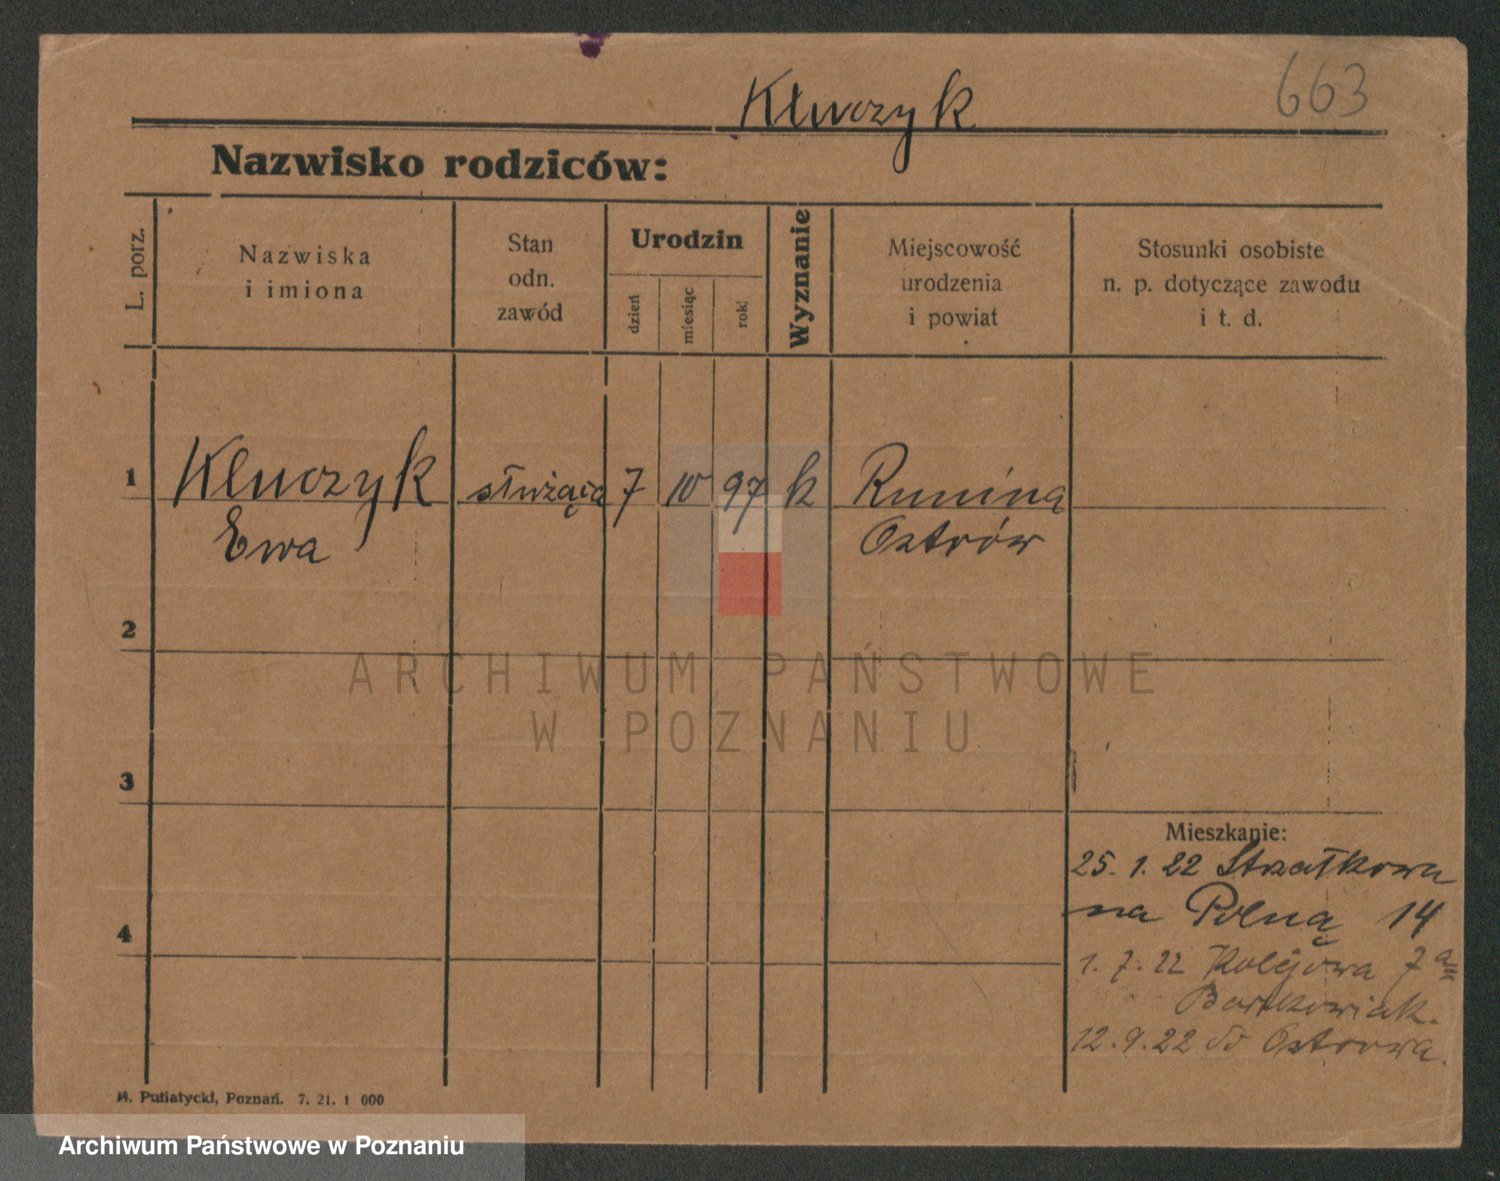 Kluczyk
663
Nazwisko rodziców:
L. porz.
Nazwiska
i imiona
Stan
odn.
zawód
Urodzin
dzień
miesiąc
rok
Wyznanie
Miejscowość
urodzenia
i powiat
Stosunki osobiste
n. p. dotyczące zawodu
i t. d.
1 Kluczyk służąca 7 10 97 k
Ewa Ostrów
2
ARCHIWUM PAŃSTWOWE
W POZNANIU
3
Mieszkanie:
25. 1. 22 Strzałkowa
na Polną 14
4
1. 7. 22 Kolejowa 7a
Bartkowiak.
12. 9. 22 do Ostrowa.
M. Putiatycki, Poznań. 7. 21. 1 000
Archiwum Państwowe w Poznaniu